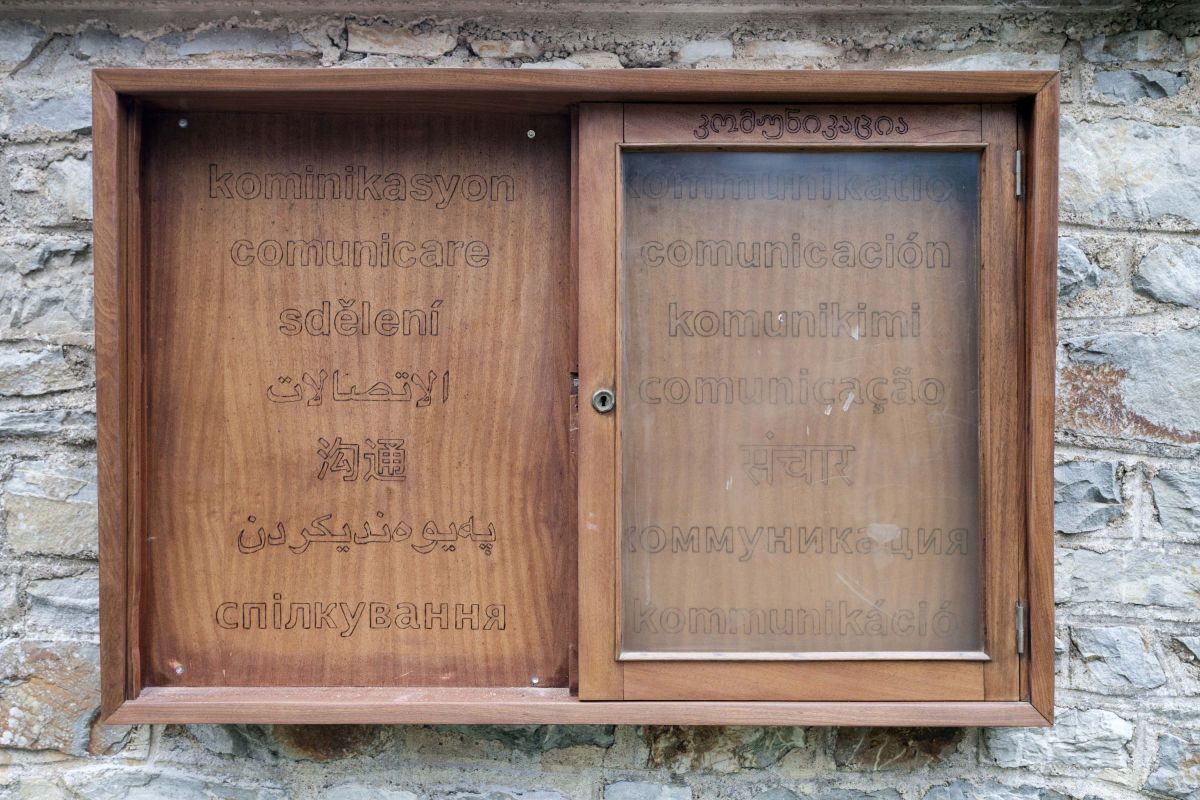 kominikasyon
comunicare
sdělení
الإتصالات
沟通
پەیوەندیکردن
спілкування
კომუნიკაცია
kommunikation
comunicación
komunikimi
comunicação
संचार
коммуникация
kommunikáció